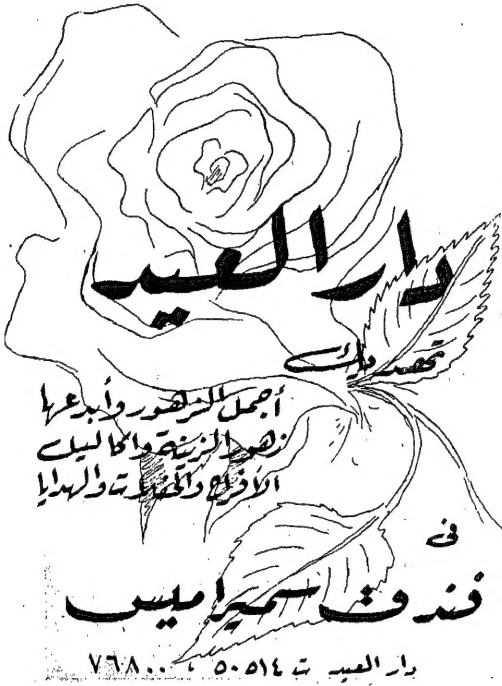 دار العيد
تهديك
أجمل الزهور وأبدعها
زهور الزينة وأكاليل
الأفراح والحفلات والهدايا
فى
فندق سميراميس
دار العيد ت ٥٠٥١٤ ، ٧٦٨٠٠